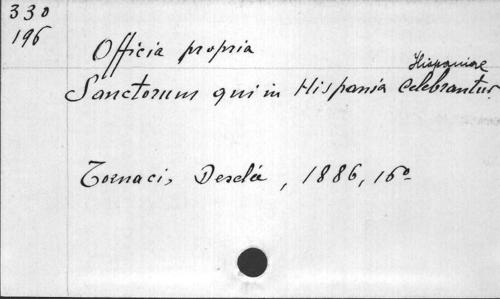 330
196
Officia propria
Hispaniae
Sanctorum qui in Hispania celebrantur.
Tornaci, Desclée, 1886, 16º